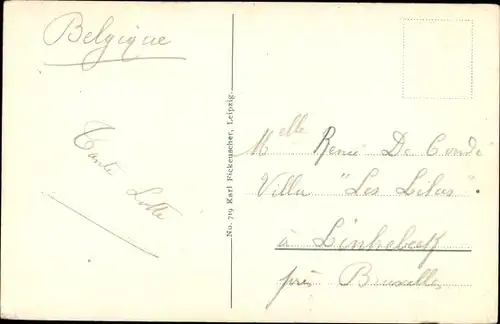 Belgique
Tante Lotte
No. 719 Karl Fickenscher, Leipzig.
Melle Renée De Condé
Villa "Les Lilas".
à Linkebeek
près Bruxelles